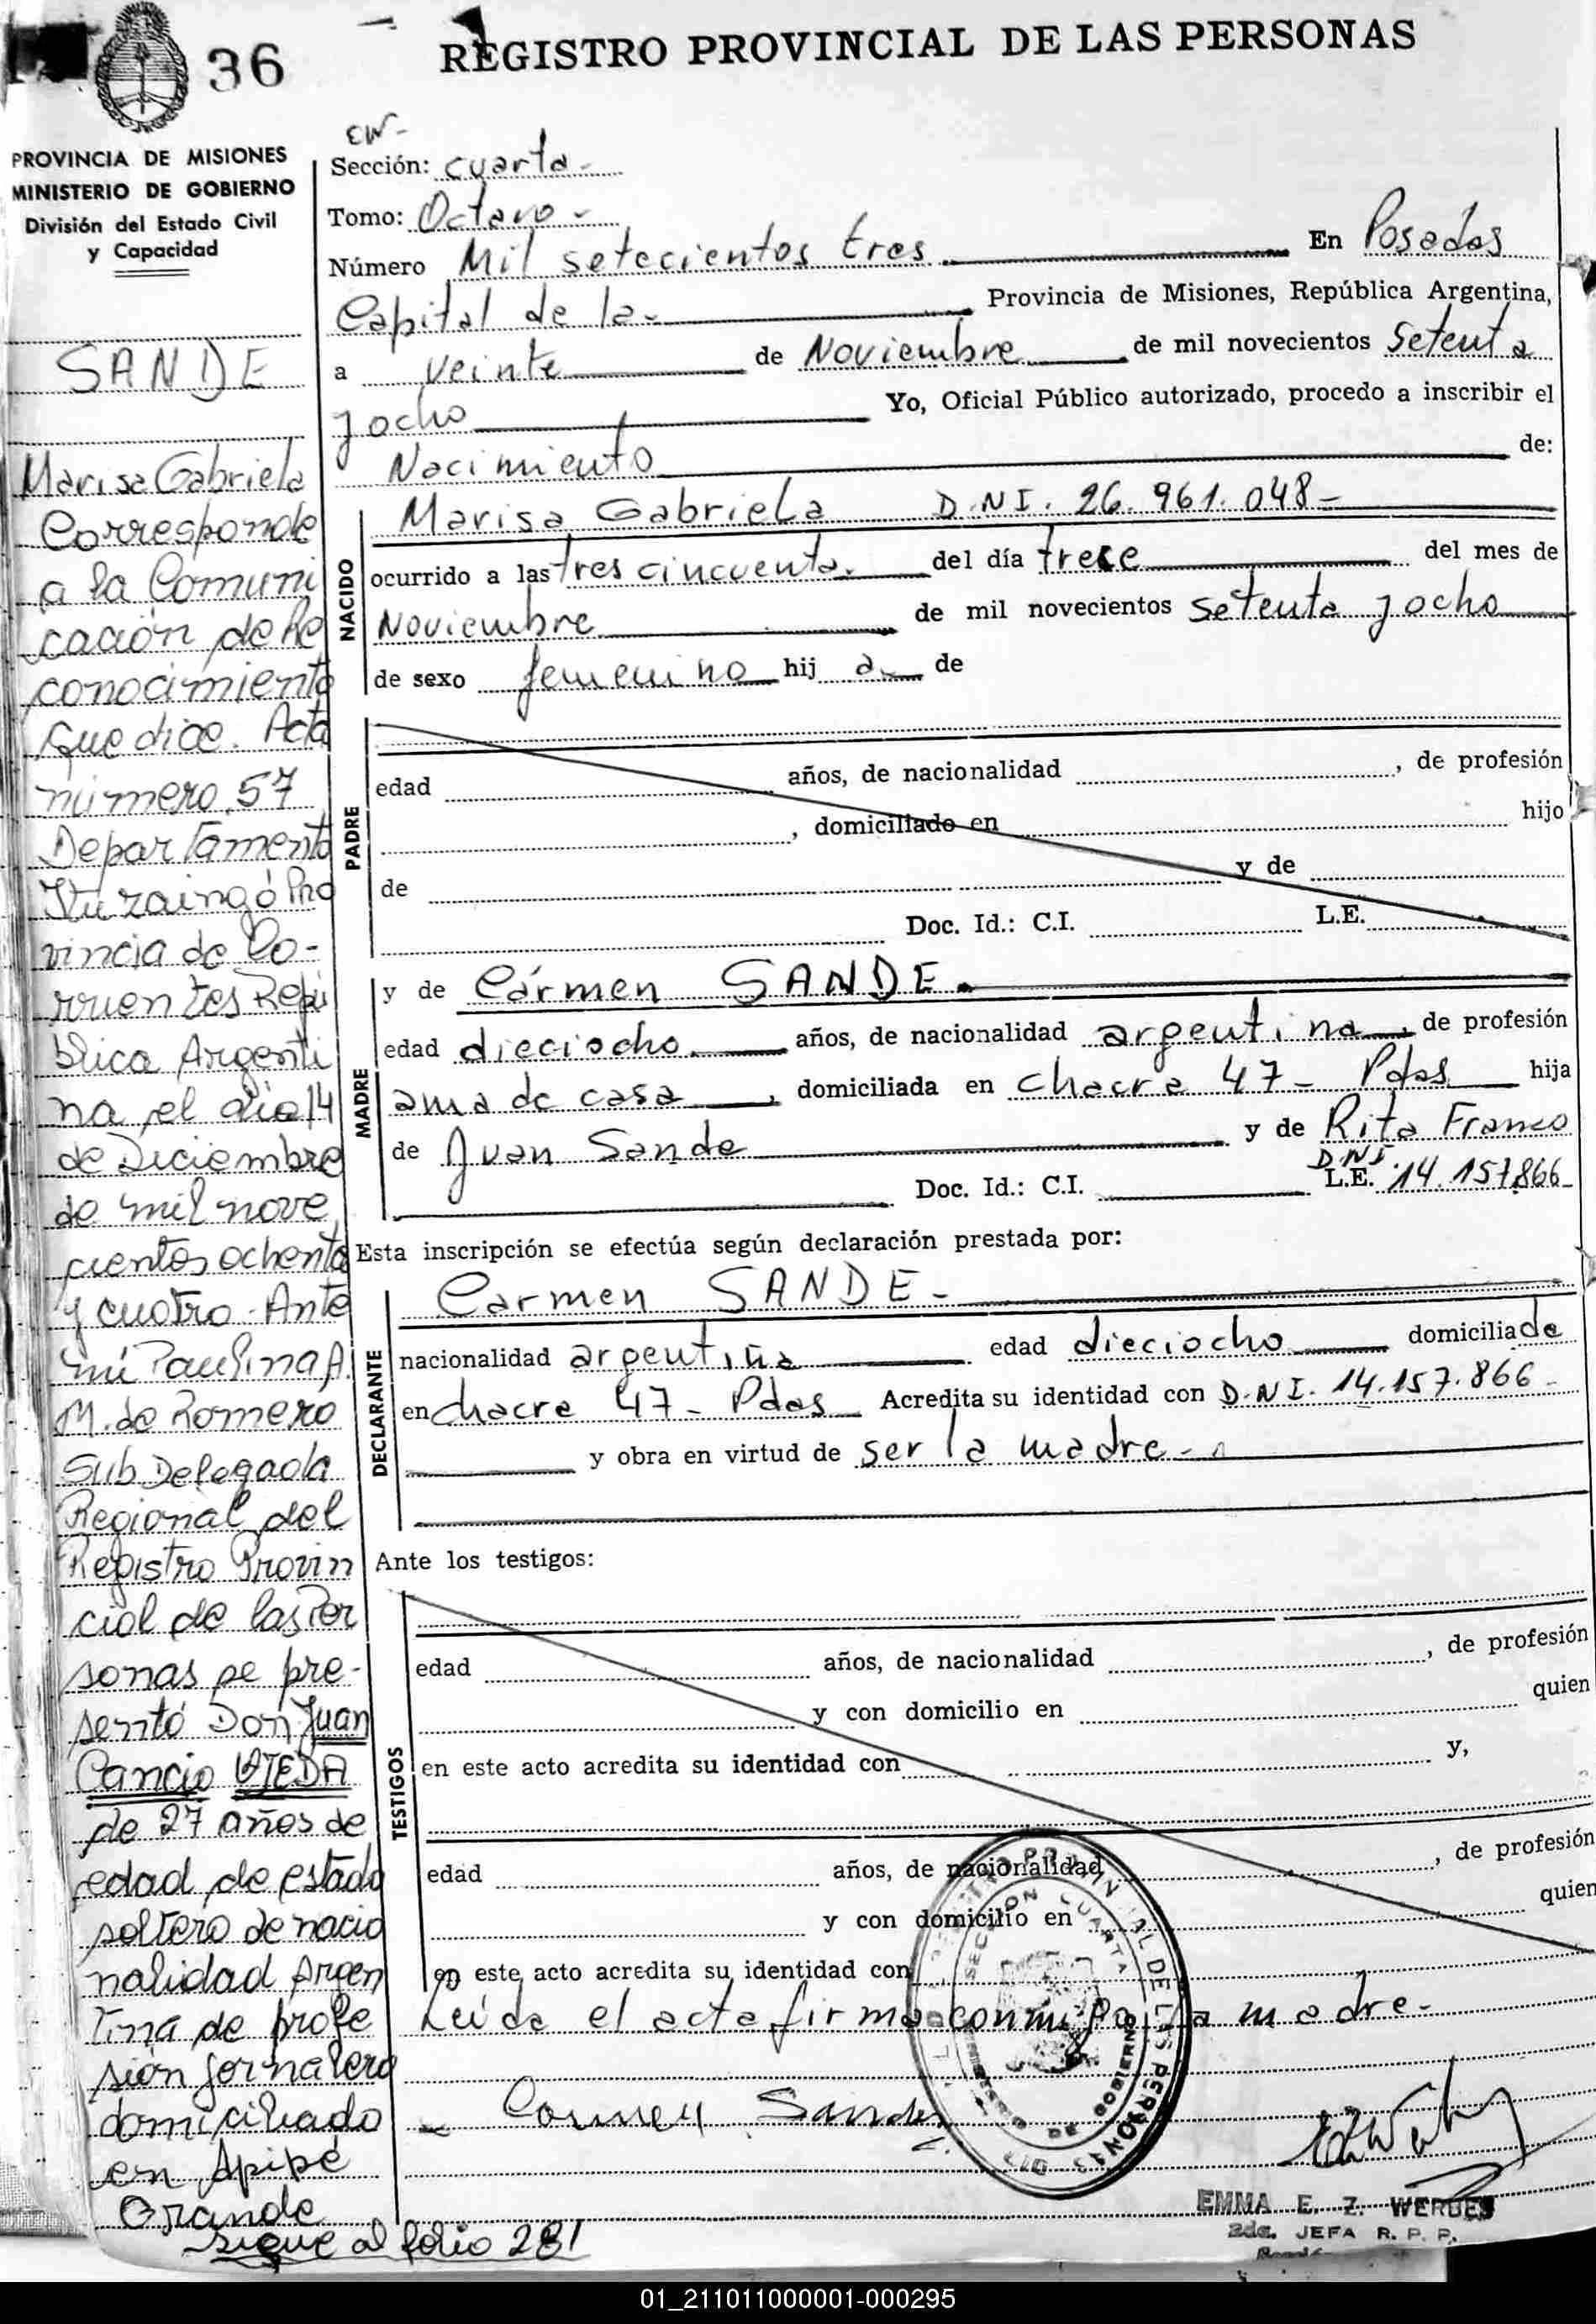 36
REGISTRO PROVINCIAL DE LAS PERSONAS
PROVINCIA DE MISIONES
MINISTERIO DE GOBIERNO
División del Estado Civil
y Capacidad
SANDE
Marisa Gabriela
Corresponde
a la Comuni
cación de Re
conocimiento
que dice. Acta
número 57
Departamento
Ituzaingó Pro
vincia de Co-
rrientes Repú
blica Argenti
na, el día 14
de Diciembre
de mil nove
cientos ochenta
y cuatro. Ante
mí Paulina A.
M. de Romero
Sub Delegada
Regional del
Registro Provin
cial de las Per
sonas se pre-
sentó Don Juan
Cancio OJEDA
de 27 años de
edad de estado
soltero de nacio
nalidad Argen
tina de profe
sión jornalero
domiciliado
en Apipé
Grande
sigue al folio 281
Sección: cuarta-
Tomo: Octavo-
Número Mil setecientos tres. En Posadas
Capital de la- Provincia de Misiones, República Argentina,
a veinte de Noviembre de mil novecientos setenta
y ocho Yo, Oficial Público autorizado, procedo a inscribir el
Nacimiento de:
NACIDO
Marisa Gabriela D.N.I. 26.961.048-
ocurrido a las tres cincuenta. del día trece del mes de
Noviembre de mil novecientos setenta y ocho
de sexo femenino hij a de
PADRE
edad años, de nacionalidad , de profesión
, domiciliado en hijo
de y de
Doc. Id.: C.I. L.E.
MADRE
y de Cármen SANDE.
edad dieciocho años, de nacionalidad argentina, de profesión
ama de casa, domiciliada en chacra 47- Pdas hija
de Juan Sande y de Rita Franco
D.N.I.
Doc. Id.: C.I. L.E. 14.157866-
Esta inscripción se efectúa según declaración prestada por:
DECLARANTE
Carmen SANDE-
nacionalidad argentina edad dieciocho domiciliada
en chacra 47- Pdas Acredita su identidad con D.N.I. 14.157.866-
y obra en virtud de ser la madre-
Ante los testigos:
TESTIGOS
edad años, de nacionalidad , de profesión
y con domicilio en quien
en este acto acredita su identidad con y,
edad años, de nacionalidad , de profesión
y con domicilio en quien
en este acto acredita su identidad con
Leída el acta firma conmigo la madre-
Carmen Sande
SECCION CUARTA
EMMA E. Z. WERDES
2da. JEFA R. P. P.
01_211011000001-000295